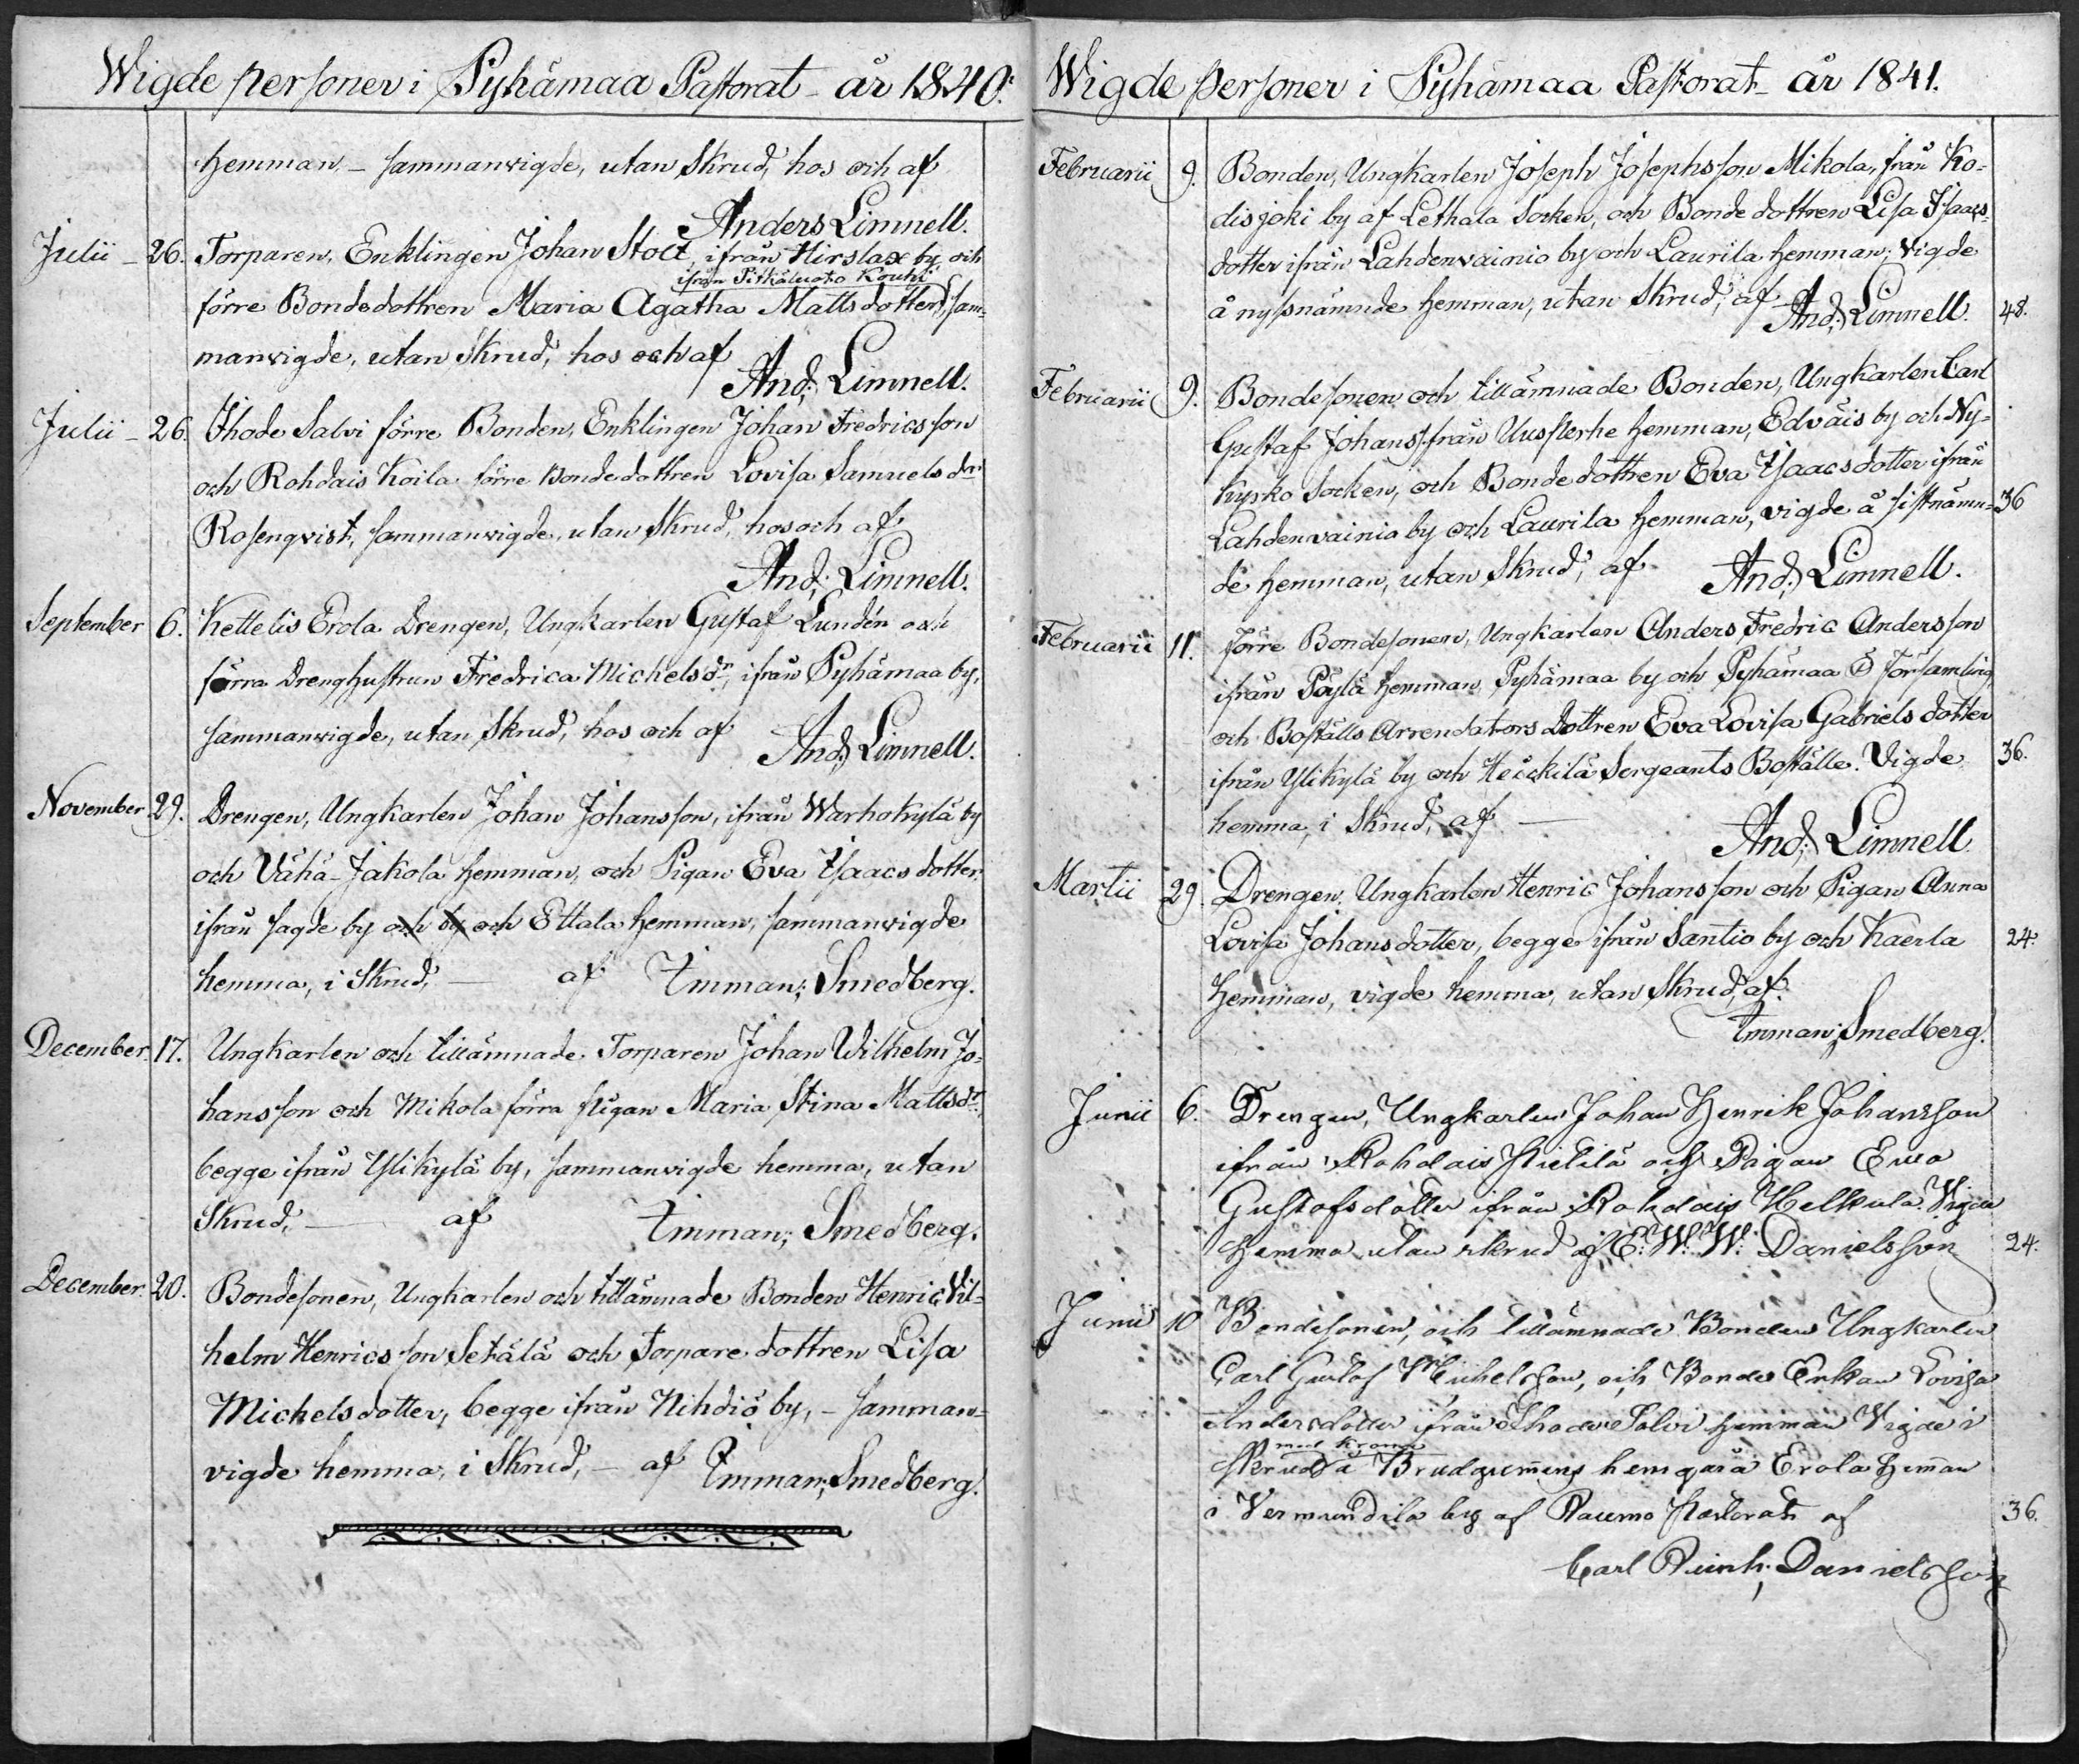 Wigde personer i Pyhämaa Pastorat år 1840.
Hemman, – sammanvigde, utan Skrud, hos och af
Anders Limnell.
Julii – 26. Torparen, Enklingen Johan Stolt, ifrån Hirslax by, och
ifrån Pitkäluoto Kouhi
förre Bondedottren Maria Agatha Mattsdotter, sam-
manvigde, utan Skrud, hos och af
And; Limnell.
Julii – 26. Ihode Salvi förre Bonden, Enklingen Johan Fredricsson
och Rohdais Koila förre Bondedottren Lovisa Samuels dr
Rosenqvist, sammanvigde, utan Skrud, hos och af
And; Limnell.
September 6. Kettelis Erola Drengen, Ungkarlen Gustaf Lundén och
förra Drenghustrun Fredrica Michelsdr, ifrån Pyhämaa by,
sammanvigde, utan Skrud, hos och af
And; Limnell.
November 29. Drengen, Ungkarlen Johan Johansson, ifrån Warhokylä by
och Vähä-Jakola Hemman, och Pigan Eva Isaacs dotter
ifrån sagde by och by och Ettala Hemman, sammanvigde
hemma, i Skrud, – af Emman; Smedberg.
December 17. Ungkarlen och tillämnade Torparen Johan Wilhelm Jo-
hansson och Mikola förra pigan Maria Stina Mattsdr,
begge ifrån Ylikylä by, sammanvigde hemma, utan
Skrud, – af Emman; Smedberg.
December 20. Bondesonen, Ungkarlen och tillämnade Bonden Henric Vil-
helm Henricsson Setälä och Torpare dottren Lisa
Michelsdotter, begge ifrån Nihdiö by, – samman-
vigde hemma, i Skrud, – af Emman; Smedberg.
Wigde personer i Pyhämaa Pastorat år 1841.
Februarii 9. Bonden, Ungkarlen Joseph Josephsson Mikola, från Ko-
disjoki by af Lethala Socken, och Bonde dottren Lisa Isaacs-
dotter ifrån Lahdenvainio by och Laurila Hemman; Vigde
å nyssnämnde Hemman, utan Skrud, af And; Limnell. 48.
Februarii 9. Bondesonen och tillämnade Bonden, Ungkarlen Carl
Gustaf Johanss. från Uusperhe Hemman, Edväis by och Ny-
kyrko Socken, och Bonde dottren Eva Isaacsdotter ifrån
Lahdenvainio by och Laurila Hemman, vigde å sistnämn- 36
de Hemman, utan Skrud, af And; Limnell.
Februarii 11. Förre Bondesonen, Ungkarlen Anders Fredric Andersson
ifrån Pöylä Hemman, Pyhämaa by och Pyhämaa Ö Församling,
och Boställs Arrendators Dottren Eva Lovisa Gabriels dotter
ifrån Ylikylä by och Heickilä Sergeants Boställe. Vigde 36.
hemma, i Skrud, af –
And; Limnell
Martii 29. Drengen, Ungkarlen Henric Johansson och Pigan Anna
Lovisa Johansdotter, begge ifrån Santio by och Kaerla 24.
Hemman, vigde hemma, utan Skrud, af
Emman; Smedberg.
Junii 6. Drengen, Ungkarlen Johan Henrik Johansson
ifrån Rohdais och Pigan Ewa
Gustafsdotter ifrån Rohdais Helkula. Vigde
hemma utan skrud af E. W. W. Danielsson 24.
Junii 10 Bondesonen, och tillämnade Bonden Ungkarlen
Carl Gustaf Michelsson, och Bonde Enkan Lovisa
Andersdotter ifrån Ihode Salvi hemman Vigde i
med krona
skrud å Brudgummens hemgård Erola Heman
i Vermundila by af Raumo Pastorat af 36.
Carl Reinh; Danielsson